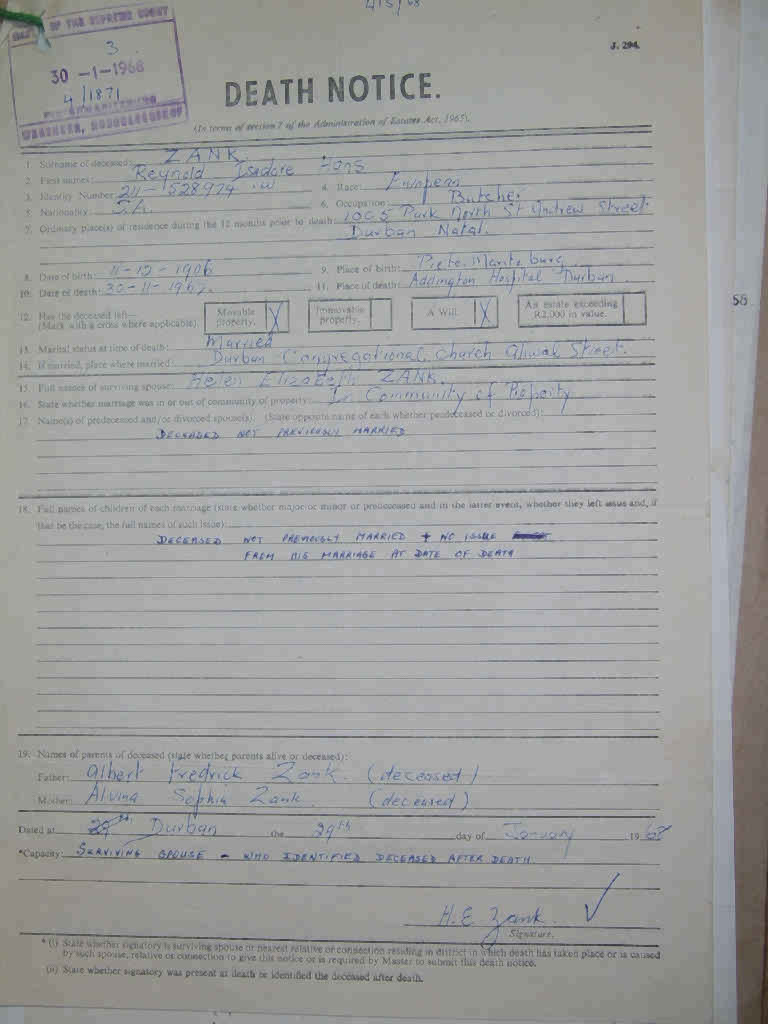 4/5/68
J. 294.
OF THE SUPREME COURT
3
30 -1-1968
4/1871
DEATH NOTICE.
(In terms of section 7 of the Administration of Estates Act, 1965).
1. Surname of deceased: ZANK
2. First names: Reynold Isadore Hans
3. Identity Number 211-528974 W 4. Race: European
5. Nationality: S.A. 6. Occupation: Butcher
7. Ordinary place(s) of residence during the 12 months prior to death: 1005 Park North St Andrew Street
Durban Natal.
8. Date of birth: 11-12-1906 9. Place of birth: Pietermaritzburg
10. Date of death: 30-11-1967. 11. Place of death: Addington Hospital Durban
12. Has the deceased left— (Mark with a cross where applicable) Movable property. X Immovable property. A Will X An estate exceeding R2,000 in value.
13. Marital status at time of death: Married
14. If married, place where married: Durban Congregational Church Aliwal Street.
15. Full names of surviving spouse: Helen Elizabeth ZANK.
16. State whether marriage was in or out of community of property: In Community of Proparity
17. Name(s) of predeceased and/or divorced spouse(s). (State opposite name of each whether predeceased or divorced):
DECEASED NOT PREVIOUSLY MARRIED
18. Full names of children of each marriage (state whether major or minor or predeceased and in the latter event, whether they left issue and, if
that be the case, the full names of such issue):
DECEASED NOT PREVIOUSLY MARRIED + NO ISSUE
FROM HIS MARRIAGE AT DATE OF DEATH
19. Names of parents of deceased (state whether parents alive or deceased):
Father: Albert Fredrick Zank. (deceased)
Mother: Alvina Sophia Zank. (deceased)
Dated at 29th Durban the 29th day of January 1968
*Capacity: SURVIVING SPOUSE - WHO IDENTIFIED DECEASED AFTER DEATH.
H.E. Zank.
Signature.
* (i) State whether signatory is surviving spouse or nearest relative or connection residing in district in which death has taken place or is caused
by such spouse, relative or connection to give this notice or is required by Master to submit this death notice.
(ii) State whether signatory was present at death or identified the deceased after death.